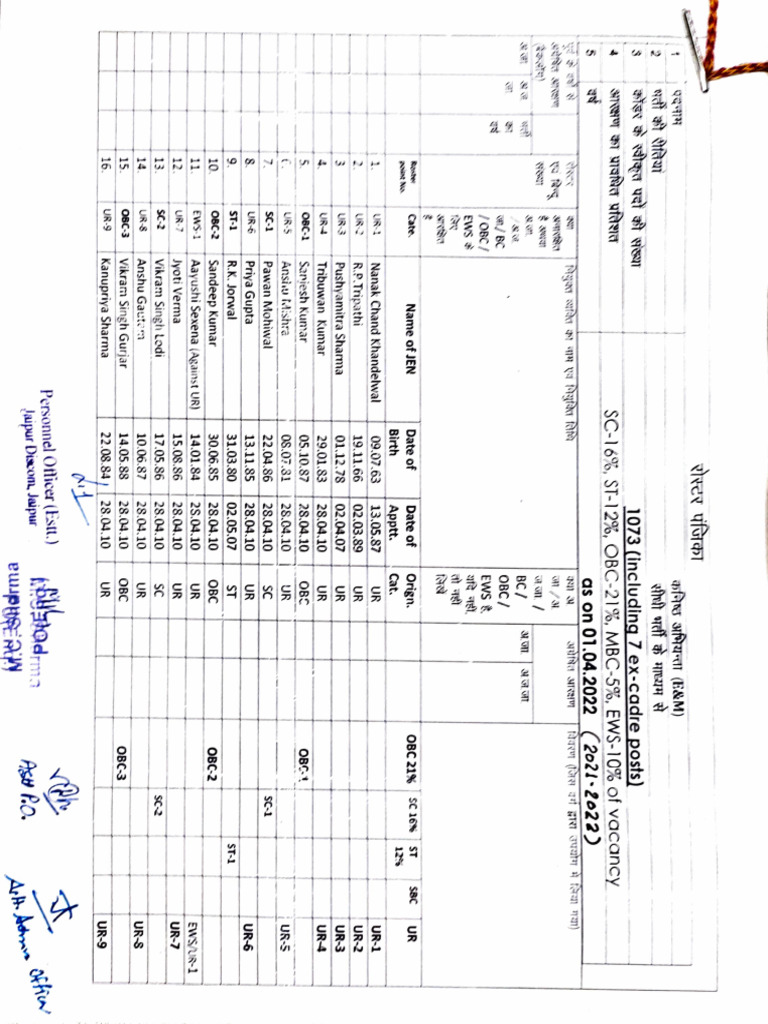 रोस्टर पंजिका
1 पदनाम कनिष्ठ अभियन्ता (E&M)
2 भर्ती की रीतिया सीधी भर्ती के माध्यम से
3 कॉडर के स्वीकृत पदो की संख्या 1073 (including 7 ex-cadre posts)
4 आरक्षण का प्रावधित प्रतिशत SC-16%, ST-12%, OBC-21%, MBC-5%, EWS-10% of vacancy
5 वर्ष as on 01.04.2022 (2021-2022)
नियुक्त व्यक्ति का नाम एवं नियुक्ति तिथि
अग्रेषित आरक्षण
विवरण (जिस वर्ग द्वारा उपयोग में लिया गया)
अ.जा. अ.ज.जा. भर्ती का वर्ष
रोस्टर एवं बिन्दु संख्या
क्या अनारक्षित है अथवा अ.जा. / अ.ज.जा./ BC / OBC / EWS के लिए आरक्षित है
क्या अ जा / अ. ज.जा. / BC / OBC / EWS है, यदि नहीं, तो नहीं लिखें
अ.जा. अ.ज.जा
Roster point No. Cate. Name of JEN Date of Birth Date of Apptt. Orign. Cat. OBC 21% SC 16% ST 12% SBC UR
1. UR-1 Nanak Chand Khandelwal 09.07.63 13.05.87 UR UR-1
2. UR-2 R.P.Tripathi 19.11.66 02.03.89 UR UR-2
3 UR-3 Pushyamitra Sharma 01.12.78 02.04.07 UR UR-3
4. UR-4 Tribuwan Kumar 29.01.83 28.04.10 UR UR-4
5. OBC-1 Sanjesh Kumar 05.10.87 28.04.10 OBC OBC-1
UR-5 Anshu Mishra 08.07.81 28.04.10 UR UR-5
7. SC-1 Pawan Mohiwal 22.04.86 28.04.10 SC SC-1
8. UR-6 Priya Gupta 13.11.85 28.04.10 UR UR-6
9. ST-1 R.K. Jorwal 31.03.80 02.05.07 ST ST-1
10. OBC-2 Sandeep Kumar 30.06.85 28.04.10 OBC OBC-2
11. EWS-1 Aayushi Sexena (Against UR) 14.01.84 28.04.10 UR EWS/UR-1
12. UR-7 Jyoti Verma 15.08.86 28.04.10 UR UR-7
13. SC-2 Vikram Singh Lodi 17.05.86 28.04.10 SC SC-2
14. UR-8 Anshu Gautam 10.06.87 28.04.10 UR UR-8
15. OBC-3 Vikram Singh Gurjar 14.05.88 28.04.10 OBC OBC-3
16. UR-9 Kanupriya Sharma 22.08.84 28.04.10 UR UR-9
Personnel Officer (Estt.)
Jaipur Discom, Jaipur
Asst P.O.
Asth. Admn Officer